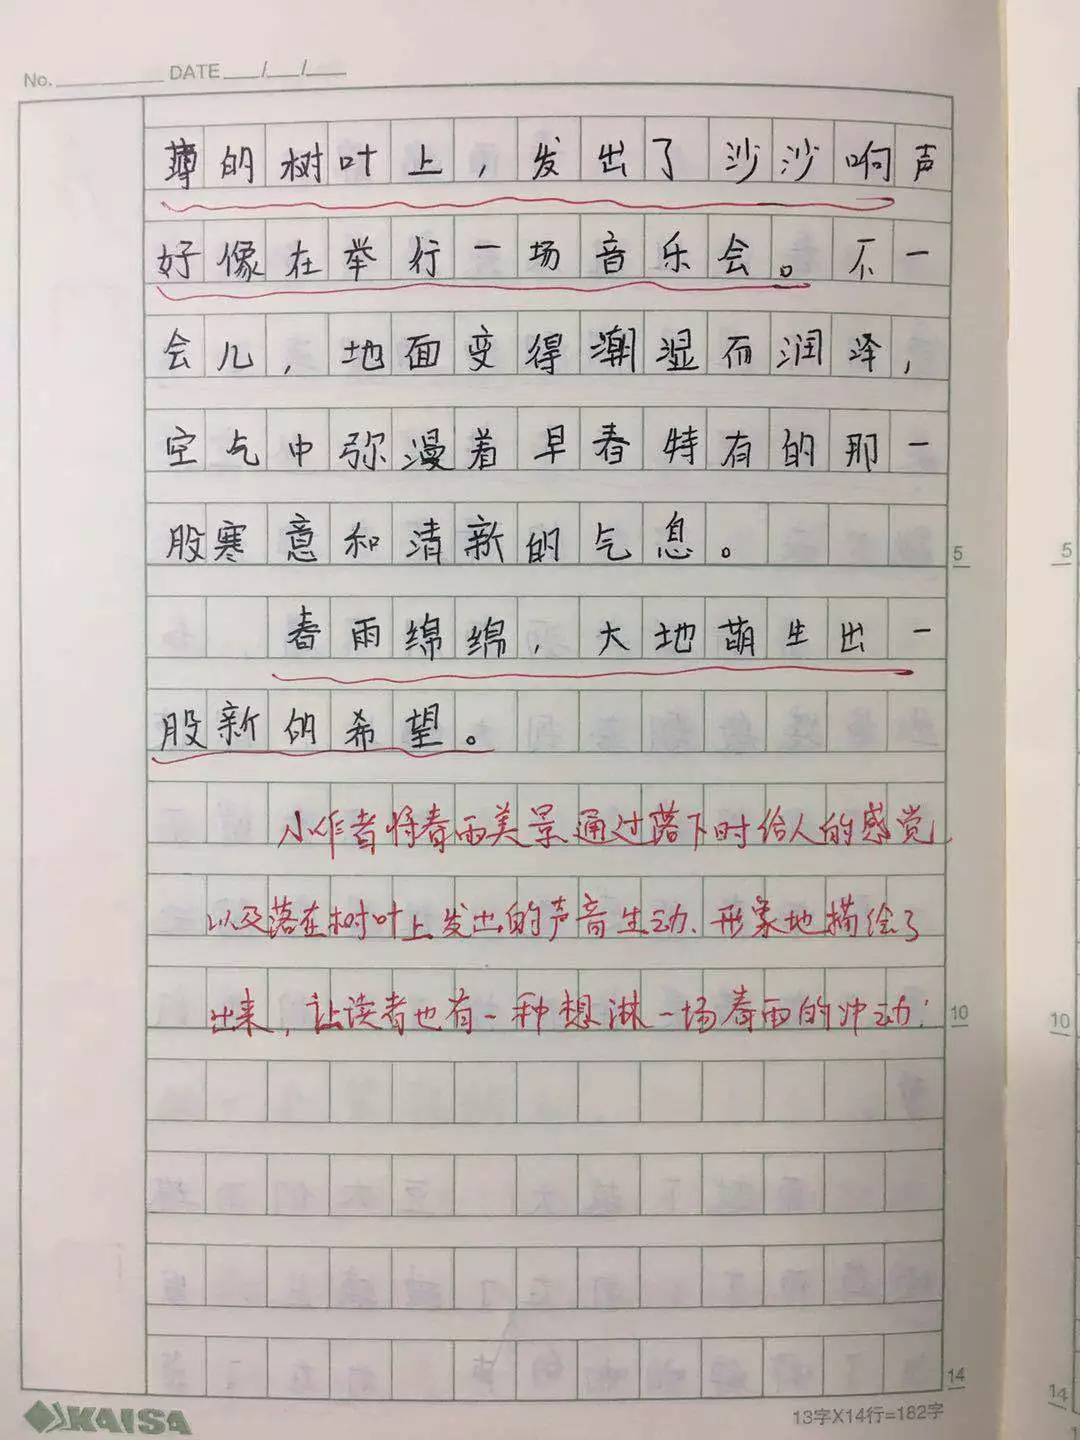 No. DATE / /
薄的树叶上，发出了沙沙响声
好像在举行一场音乐会。不一
会儿，地面变得潮湿而润泽，
空气中弥漫着早春特有的那一
股寒意和清新的气息。
5
春雨绵绵，大地萌生出一
股新的希望。
小作者将春雨美景通过落下时给人的感觉
以及落在树叶上发出的声音生动、形象地描绘了
出来，让读者也有一种想淋一场春雨的冲动！
10
14
KAISA
13字X14行=182字
5
10
14